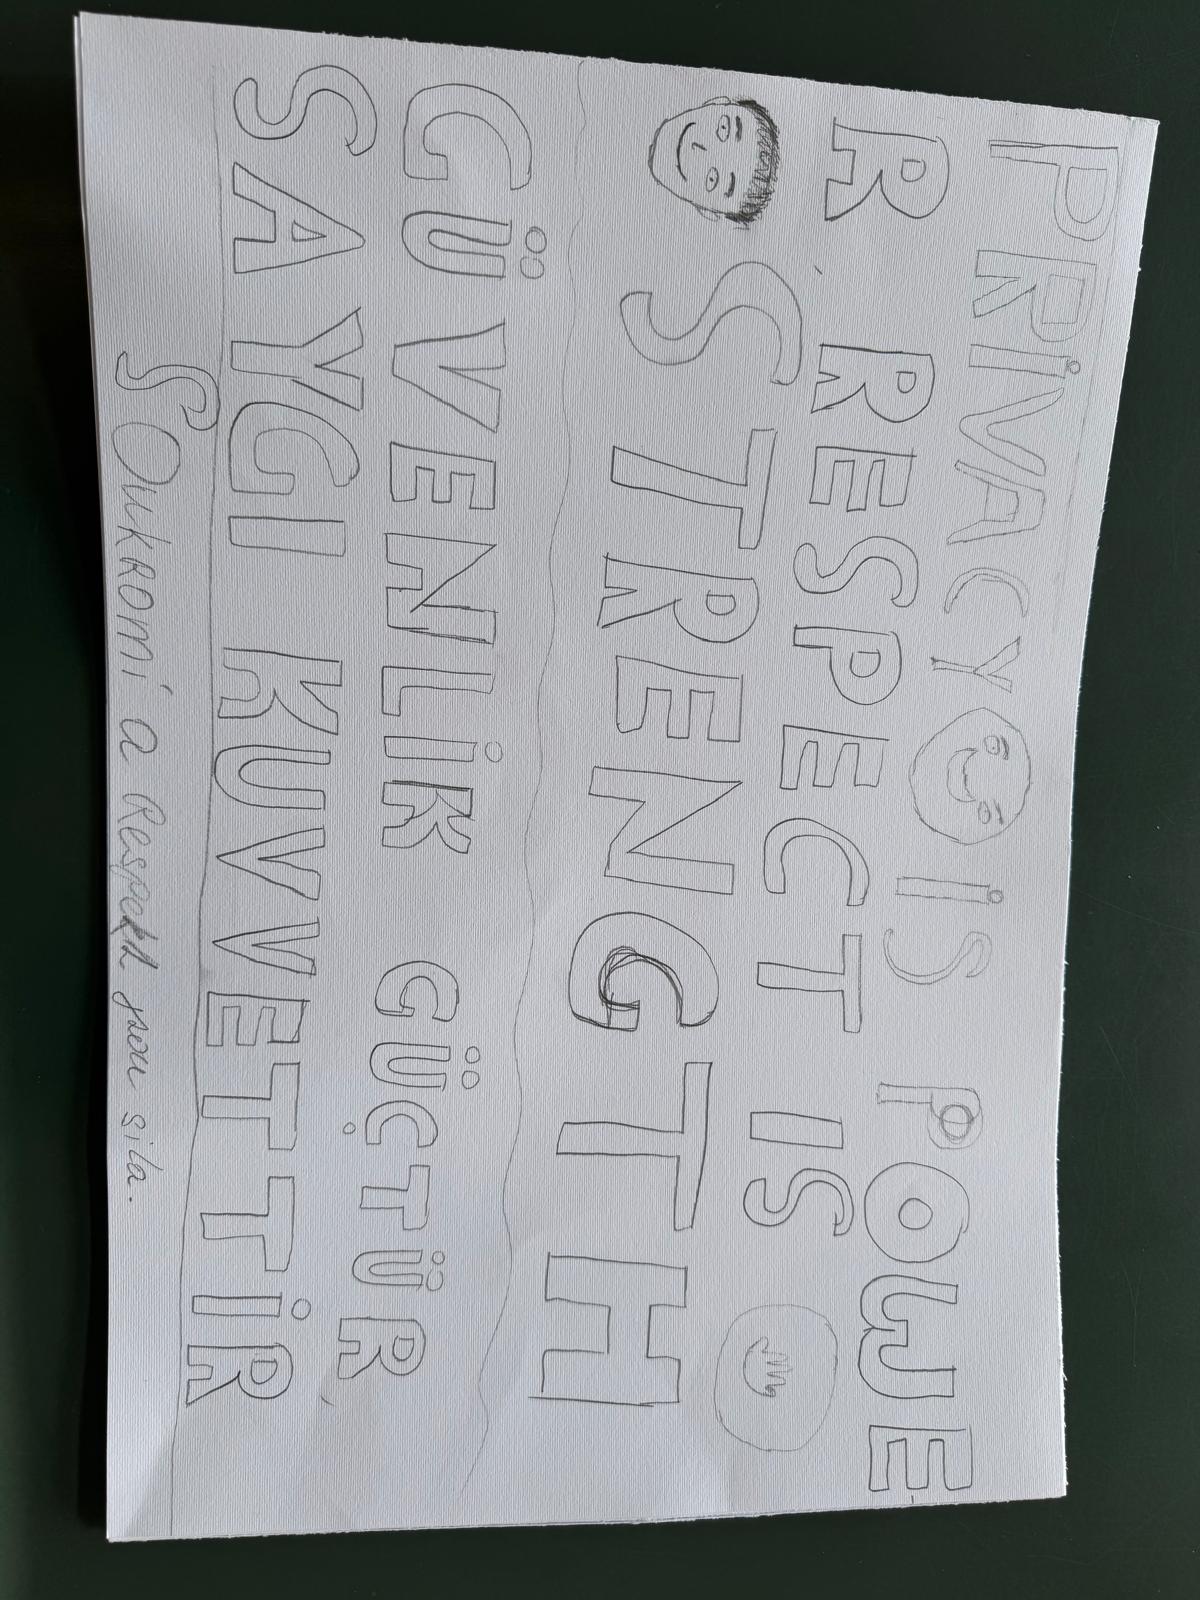 PRİVACY İS POWE
R RESPECT IS
STRENGTH
GÜVENLİK GÜÇTÜR
SAYGI KUVVETTİR
Soukromí a Respekt jsou síla.